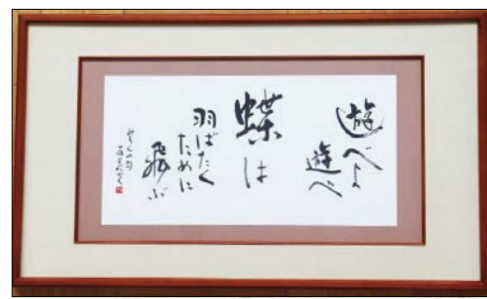 遊べよ
遊べ
蝶は
羽ばたく
ために
飛ぶ